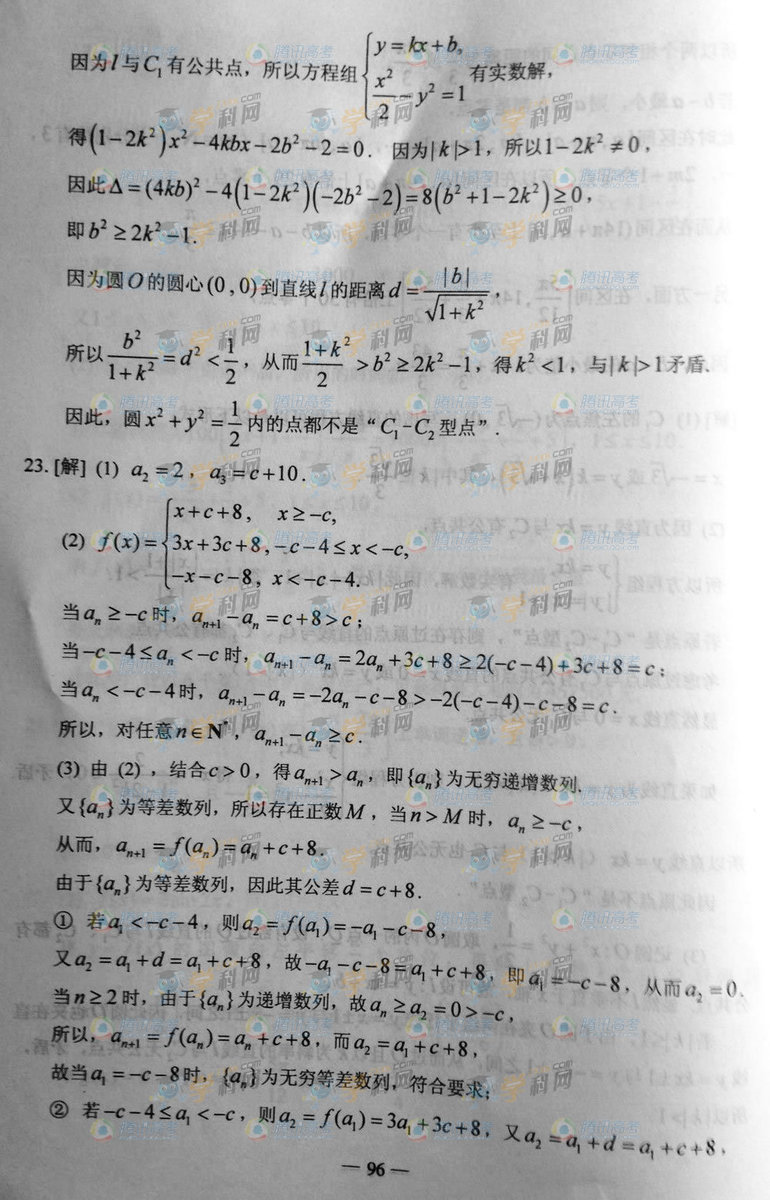 因为l与C₁有公共点，所以方程组{y=kx+b, x²/2-y²=1 有实数解，
得(1-2k²)x²-4kbx-2b²-2=0．因为|k|>1，所以1-2k²≠0，
因此Δ=(4kb)²-4(1-2k²)(-2b²-2)=8(b²+1-2k²)≥0，
即b²≥2k²-1．
因为圆O的圆心(0,0)到直线l的距离d=|b|/√(1+k²)，
所以b²/(1+k²)=d²<1/2，从而(1+k²)/2>b²≥2k²-1，得k²<1，与|k|>1矛盾．
因此，圆x²+y²=1/2内的点都不是“C₁-C₂型点”．
23. [解] (1) a₂=2，a₃=c+10．
(2) f(x)={x+c+8, x≥-c,
3x+3c+8, -c-4≤x<-c,
-x-c-8, x<-c-4.
当aₙ≥-c时，aₙ₊₁-aₙ=c+8>c；
当-c-4≤aₙ<-c时，aₙ₊₁-aₙ=2aₙ+3c+8≥2(-c-4)+3c+8=c；
当aₙ<-c-4时，aₙ₊₁-aₙ=-2aₙ-c-8>-2(-c-4)-c-8=c．
所以，对任意n∈N*，aₙ₊₁-aₙ≥c．
(3) 由 (2) ，结合c>0，得aₙ₊₁>aₙ，即{aₙ}为无穷递增数列．
又{aₙ}为等差数列，所以存在正数M，当n>M时，aₙ≥-c，
从而，aₙ₊₁=f(aₙ)=aₙ+c+8．
由于{aₙ}为等差数列，因此其公差d=c+8．
① 若a₁<-c-4，则a₂=f(a₁)=-a₁-c-8，
又a₂=a₁+d=a₁+c+8，故-a₁-c-8=a₁+c+8，即a₁=-c-8，从而a₂=0．
当n≥2时，由于{aₙ}为递增数列，故aₙ≥a₂=0>-c，
所以，aₙ₊₁=f(aₙ)=aₙ+c+8，而a₂=a₁+c+8，
故当a₁=-c-8时，{aₙ}为无穷等差数列，符合要求；
② 若-c-4≤a₁<-c，则a₂=f(a₁)=3a₁+3c+8，又a₂=a₁+d=a₁+c+8，
— 96 —